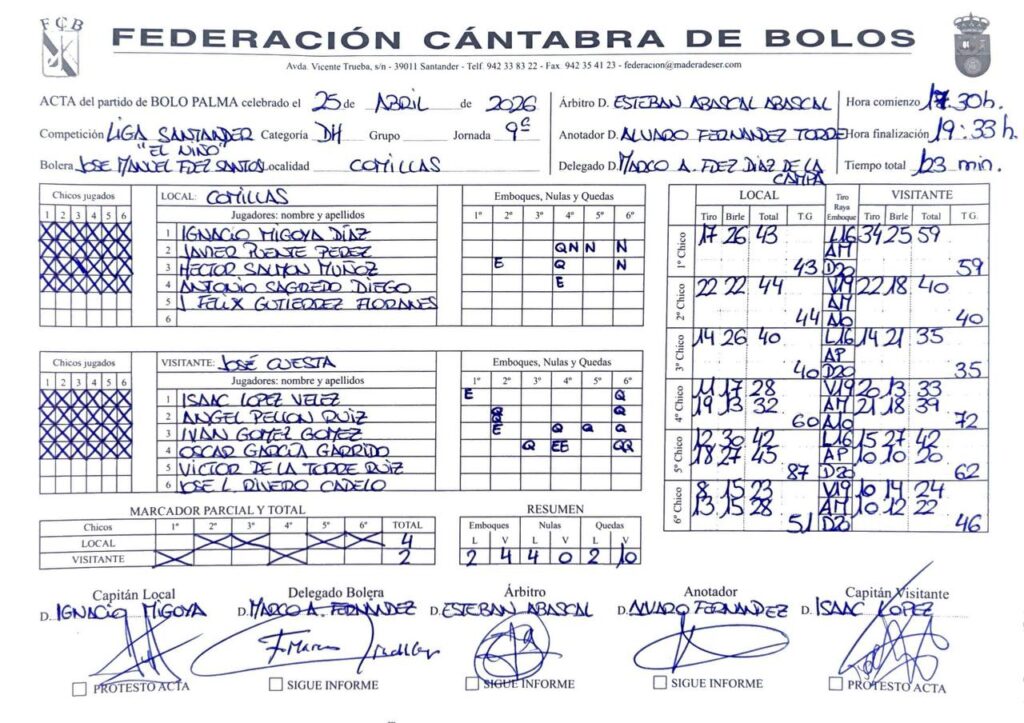 FCB
FEDERACIÓN CÁNTABRA DE BOLOS
Avda. Vicente Trueba, s/n - 39011 Santander - Telf. 942 33 83 22 - Fax. 942 35 41 23 - federacion@maderadeser.com
ACTA del partido de BOLO PALMA celebrado el 25 de ABRIL de 2026
Árbitro D. ESTEBAN ABASCAL ABASCAL
Hora comienzo 17.30h.
Competición LIGA SANTANDER Categoría DH Grupo Jornada 9ª
Anotador D. ALVARO FERNANDEZ TORRE
Hora finalización 19:33 h.
"EL NIÑO"
Bolera JOSE MANUEL FDEZ SANTOS Localidad COMILLAS
Delegado D. MARCO A. FDEZ DIAZ DE LA CAMPA
Tiempo total 123 min.
Chicos jugados
1 2 3 4 5 6
LOCAL: COMILLAS
Jugadores: nombre y apellidos
Emboques, Nulas y Quedas
1º 2º 3º 4º 5º 6º
1 IGNACIO MIGOYA DÍAZ
2 JAVIER PUENTE PEREZ QN N N
3 HECTOR SALMON MUÑOZ E Q N
4 ANTONIO SAGREDO DIEGO E
5 J. FELIX GUTIERREZ FLORANES
6
Chicos jugados
1 2 3 4 5 6
VISITANTE: JOSÉ CUESTA
Jugadores: nombre y apellidos
Emboques, Nulas y Quedas
1º 2º 3º 4º 5º 6º
1 ISAAC LOPEZ VELEZ E Q
2 ANGEL PELLON RUIZ Q
3 IVAN GOMEZ GOMEZ E Q Q Q
4 OSCAR GARCÍA GARRIDO Q EE QQ
5 VICTOR DE LA TORRE RUIZ
6 JOSE L. RIVERO CADELO
LOCAL Tiro Raya Emboque VISITANTE
Tiro Birle Total T.G. Tiro Birle Total T.G.
1º Chico 17 26 43 L16 34 25 59
AM
43 D20 59
2º Chico 22 22 44 V19 22 18 40
AM
44 A10 40
3º Chico 14 26 40 L16 14 21 35
AP
40 D20 35
4º Chico 11 17 28 V19 20 13 33
19 13 32 AM 21 18 39
60 A10 72
5º Chico 12 30 42 L16 15 27 42
18 27 45 AP 10 10 20
87 D20 62
6º Chico 8 15 23 V19 10 14 24
13 15 28 AM 10 12 22
51 D20 46
MARCADOR PARCIAL Y TOTAL
Chicos 1º 2º 3º 4º 5º 6º TOTAL
LOCAL 4
VISITANTE 2
RESUMEN
Emboques Nulas Quedas
L V L V L V
2 4 4 0 2 10
Capitán Local
D. IGNACIO MIGOYA
PROTESTO ACTA
Delegado Bolera
D. MARCO A. FERNANDEZ
SIGUE INFORME
Árbitro
D. ESTEBAN ABASCAL
SIGUE INFORME
Anotador
D. ALVARO FERNANDEZ
SIGUE INFORME
Capitán Visitante
D. ISAAC LOPEZ
PROTESTO ACTA